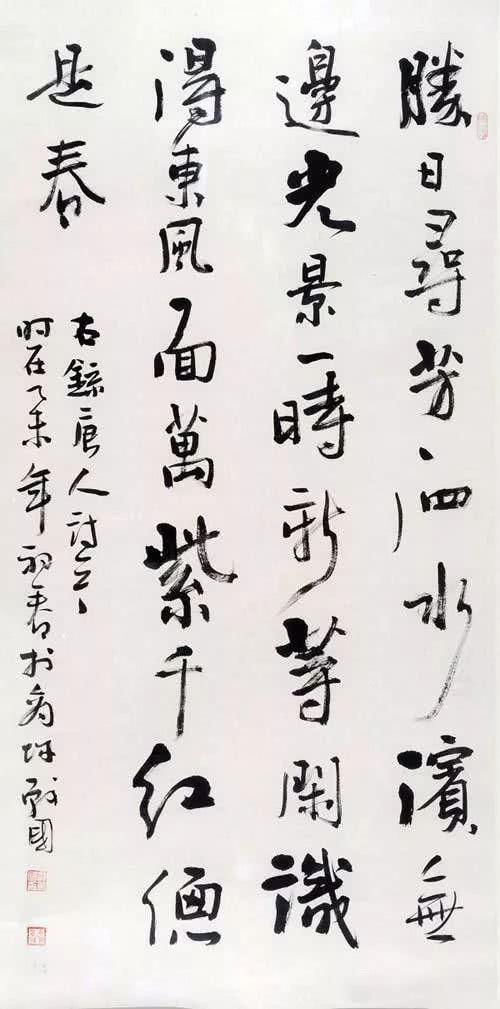 勝日尋芳泗水濱無
邊光景一時新等閑識
得東風面萬紫千紅總
是春
右錄唐人詩
时在乙未年初春於